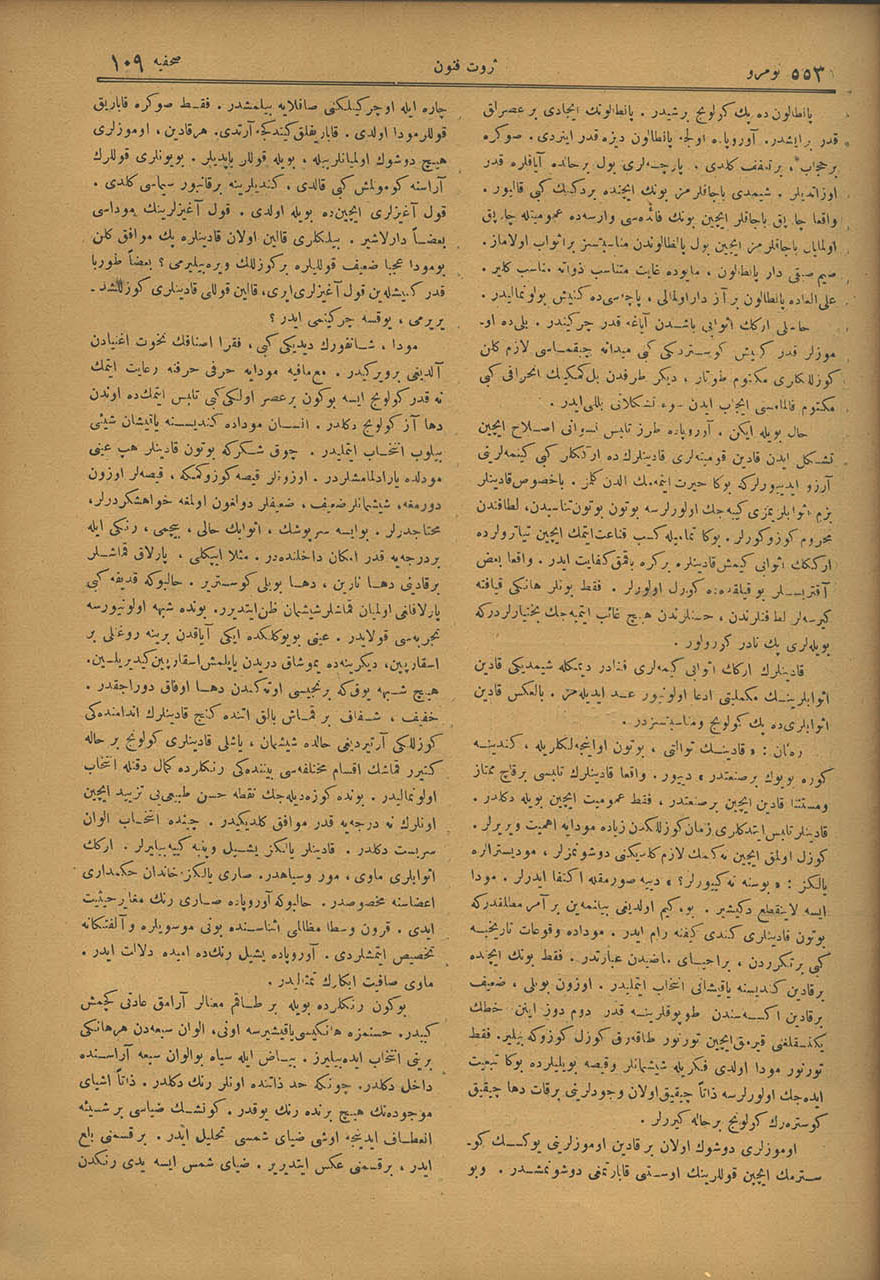 نومرو ٥٥٣
ثروت فنون
صحفیه ١٠٩
پانطالون ده پك كولونج برشیدر . پانطالونك ایجادی بر عصرلق
قدر برایشدر. آوروپاده اولجه پانطالون دیزه قدر اینردی . صوكره
برحجاب ، برتعفف كلدی ، پارچه‌لری بول برحالده آیاقلره قدر
اوزاتدیلر . شیمدی باجاقلرمز بونك ایچنده بردكنك كبی قالیور .
واقعا چارپق باجاقلر ایچین بونك فائده‌سی وارسه‌ده عمومیتله چارپق
اولمایان باجاقلرمز ایچین بول پانطالوندن مناسبتسز براثواب اولاماز.
صیم صیقی دار پانطالون ، مایوده غایت متناسب ذواته مناسب كلیر .
علی العاده پانطالون بر آز دار اولمالی ، پاچه‌سی ده كنیش بولونمالیدر .
حاصلی اركك اثوابی باشدن آیاغه قدر چركیندر . بلی ده او-
موزلر قدر كنیش كوستردیكی كبی میدانه چیقماسی لازم كلن
كوزللكلری مكتوم طوتار ، دیكر طرفدن بل كمیكنك انحرافی كبی
مكتوم قالماسی ایجاب ایدن سوء تشكلاتی بللی ایدر .
حال بویله ایكن . آوروپاده طرز تلبس نسوانی اصلاح ایچین
تشكل ایدن قادین قومیته‌لری قادینلرك ده ارككلر كبی كیینمه‌لرینی
آرزو ایدییورلركه بوكا حیرت ایتمه‌مك الدن كلمز . باخصوص قادینلر
بزم اثوابلریمزی كییه‌جك اولورلرسه بوتون بوتون تناسبدن، لطافتدن
محروم كوزوكورلر . بوكا تمامیله كسب قناعت ایتمك ایچین تیاترولرده
اركك اثوابی كیمش قادینلره بركره باقمق كفایت ایدر . واقعا بعض
آقتریسلر بو قیافتده‌ده كوزل اولورلر . فقط بونلر هانكی قیافته
كیرسه‌لر لطافتلرندن ، حسنلرندن هیچ غائب ایتمیه‌جك بختیارلردركه
بویله‌لری پك نادر كورولور .
قادینلرك اركك اثوابی كیمه‌لری فنادر دیمكله شیمدیكی قادین
اثوابلرینك مكملیتی ادعا اولونیور عد ایدیله‌مز . بالعكس قادین
اثوابلری‌ده پك كولونج ومناسبتسزدر .
رنان : «قادینك توالتی ، بوتون اوانیجه‌لكلریله ، كندینه
كوره بویوك برصنعتدر» دییور . واقعا قادینلرك تلبسی برقاچ ممتاز
ومستثنا قادین ایچین برصنعتدر ، فقط عمومیت ایچین بویله دكلدر .
قادینلر تلبس ایتدكلری زمان كوزللكدن زیاده مودایه اهمیت ویریرلر .
كوزل اولمق ایچین نه كیمك لازم كله‌جكینی دوشونمزلر ، مودیستراره
یالكز : «بوسنه نه كییورلر؟» دییه صورمقله اكتفا ایدرلر . مودا
ایسه لاینقطع دكیشیر . بوكیم اولدیغی بیلنمه‌ین بر آمر مطلقدركه
بوتون قادینلری كندی كیفنه رام ایدر . موداده وقوعات تاریخیه
كبی برتكرردن ، براحیای ماضیدن عبارتدر . فقط بونك ایچنده
برقادین كندیسنه یاقیشانی انتخاب ایتملیدر . اوزون بویلی ، ضعیف
برقادین اكسه‌سندن طوپوقلرینه قدر دوم دوز اینن خطك
یكنسقلغنی قیرمق ایچین تورنور طاقه‌رق كوزل كوزوكه بیلیر. فقط
تورنور مودا اولدی فكریله شیشمانلر وقیصه بویلیلرده بوكا تبعیت
ایده‌جك اولورلرسه ذاتاً چیقیق اولان وجودلرینی برقات دها چیقیق
كوستره‌رك كولونج برحاله كیررلر .
اوموزلری دوشوك اولان بر قادین اوموزلرینی یوكسك كو-
سترمك ایچین قوللرینك اوستنی قابارتمغی دوشونمشدر . وبو
چاره ایله اوچركینلكنی صاقلایه بیلمشدر . فقط صوكره قابارق
قوللر مودا اولدی . قابارقلق كیتدكجه آرتدی. هرقادین ، اوموزلری
هیچ دوشوك اولمایانلربیله ، بویله قوللر یاپدیلر . بویونلری قوللرك
آراسنه كومولمش كبی قالدی ، كندیلرینه برقانبور سیماسی كلدی .
قول آغیزلری ایچین ده بویله اولدی . قول آغیزلرینك موداسی
بعضاً دارلاشیر . بیلكلری قالین اولان قادینلره پك موافق كلن
بومودا عجبا ضعیف قوللیلره بركوزللك ویره بیلیرمی ؟ بعضاً طوربا
قدر كنیشله‌ین قول آغیزلری ایری، قالین قوللی قادینلری كوزللشد-
یریرمی ، یوقسه چركینمی ایدر ؟
مودا ، شانفورك دیدیكی كبی ، فقرا اصنافك نخوت اغنیادن
آلدیغی برویركیدر . مع‌مافیه مودایه حرفی حرفنه رعایت ایتمك
نه قدر كولونج ایسه بوكون برعصر اولكی كبی تلبس ایتمك‌ده اوندن
دها آز كولونج دكلدر . انسان موداده كندیسنه یاقیشان شیئی
بیلوب انتخاب ایتملیدر . چوق شكركه بوتون قادینلر هپ عینی
مودلده یارادلمامشلردر . اوزونلر قیصه كوزوكمكه ، قیصه‌لر اوزون
دورمغه، شیشمانلر ضعیف ، ضعیفلر دولغون اولمغه خواهشكردرلر،
محتاجدرلر . بوایسه سرپوشك ، اثوابك حالی ، بیچمی ، رنكی ایله
بردرجه‌یه قدر امكان داخلنده‌در . مثلا ایپكلی ، پارلاق قماشلر
برقادینی دها نارین ، دها بویلی كوستریر . حالبوكه قدیفه كبی
پارلاقلغی اولمیان قماشلر شیشمان ظن ایتدیرر. بونده شبهه اولونیورسه
تجربه‌سی قولایدر . عینی بویوكلكده ایكی آیاقدن برینه روغنلی بر
اسقارپین، دیكرینه‌ده یموشاق دریدن یاپلمش اسقارپین كیدیریلسین.
هیچ شبهه یوق كه برنجیسی اوته‌كندن دها اوفاق دوراجقدر .
خفیف ، شفاف بر قماش بالق اتنده كنج قادینلرك اندامنده‌كی
كوزللكی آرتیردیغی حالده شیشمان ، یاشلی قادینلری كولونج بر حاله
كتیرر قماشك اقسام مختلفه‌سی بیننده‌كی رنكلرده كمال دقتله انتخاب
اولونمالیدر . بونده كوزه‌دیله‌جك نقطه حسن طبیعی‌یی تزیید ایچین
اونلرك نه درجه‌یه قدر موافق كلدیكیدر . چینده انتخاب الوان
سربست دكلدر . قادینلر یالكز یشیل وپنبه كییه بیلیرلر . اركك
اثوابلری ماوی ، مور وسیاهدر. صاری یالكز خاندان حكمداری
اعضاسنه مخصوصدر . حالبوكه آوروپاده صاری رنك مغایر حیثیت
ایدی . قرون وسطا مظالمی اثناسنده بونی موسویلره وآلفتكانه
تخصیص ایتمشلردی . آوروپاده یشیل رنك ده امیده دلالت ایدر .
ماوی صافیت ابكارك تمثالیدر .
بوكون رنكلرده بویله بر طاقم معنالر آرامق عادتی كچمش
كبیدر. حسنمزه هانكیسی یاقیشیرسه اونی، الوان سبعه‌دن هرهانكی
برینی انتخاب ایده بیلیرز . بیاض ایله سیاه بو الوان سبعه آراسنده
داخل دكلدر. چونكه حد ذاتنده اونلر رنك دكلدر . ذاتاً اشیای
موجوده‌نك هیچ برنده رنك یوقدر . كونشك ضیاسی بر شیئه
انعطاف ایدینجه اوشی ضیای شمسی تحلیل ایدر . بر قسمنی بلع
ایدر ، برقسمنی عكس ایتدیریر . ضیای شمس ایسه یدی رنكدن